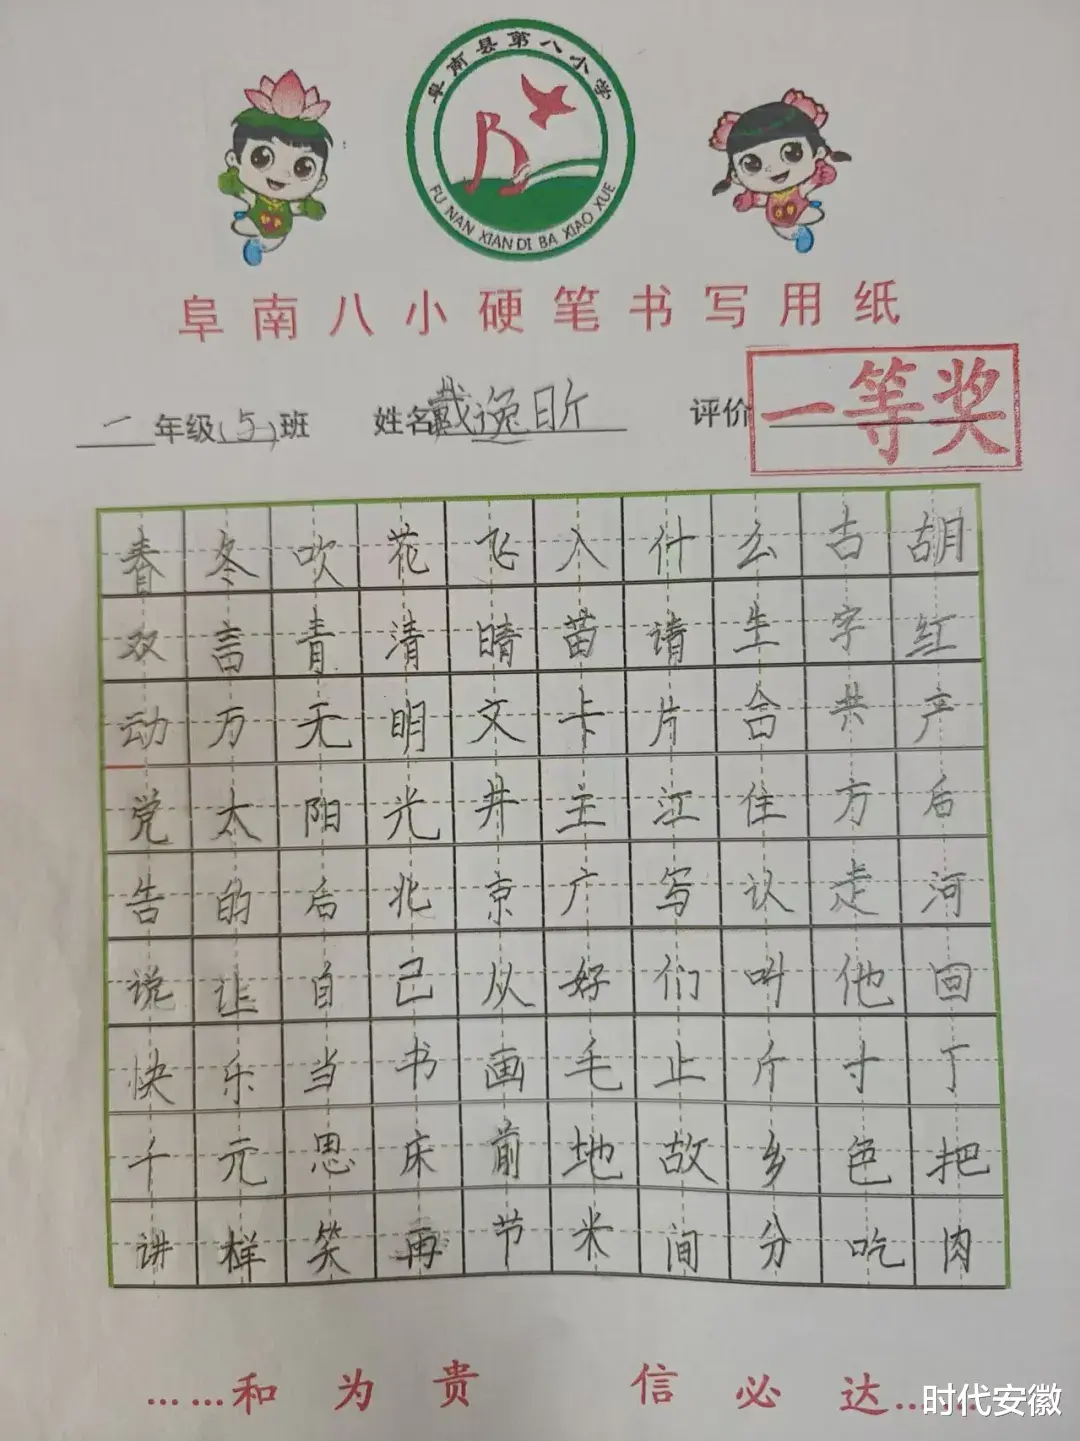 阜南县第八小学
FU NAN XIAN DI BA XIAO XUE
阜南八小硬笔书写用纸
二年级(5)班 姓名戴逸昕 评价 一等奖
春冬吹花飞入什么古胡
双言青清晴苗请生字红
动万无明文卡片合共产
党太阳光井主江住方后
告的后北京广写认走河
说让自己从好们叫他回
快乐当书画毛止斤寸丁
千元思床前地故乡色把
讲样笑再节米间分吃肉
……和为贵 信必达……
时代安徽